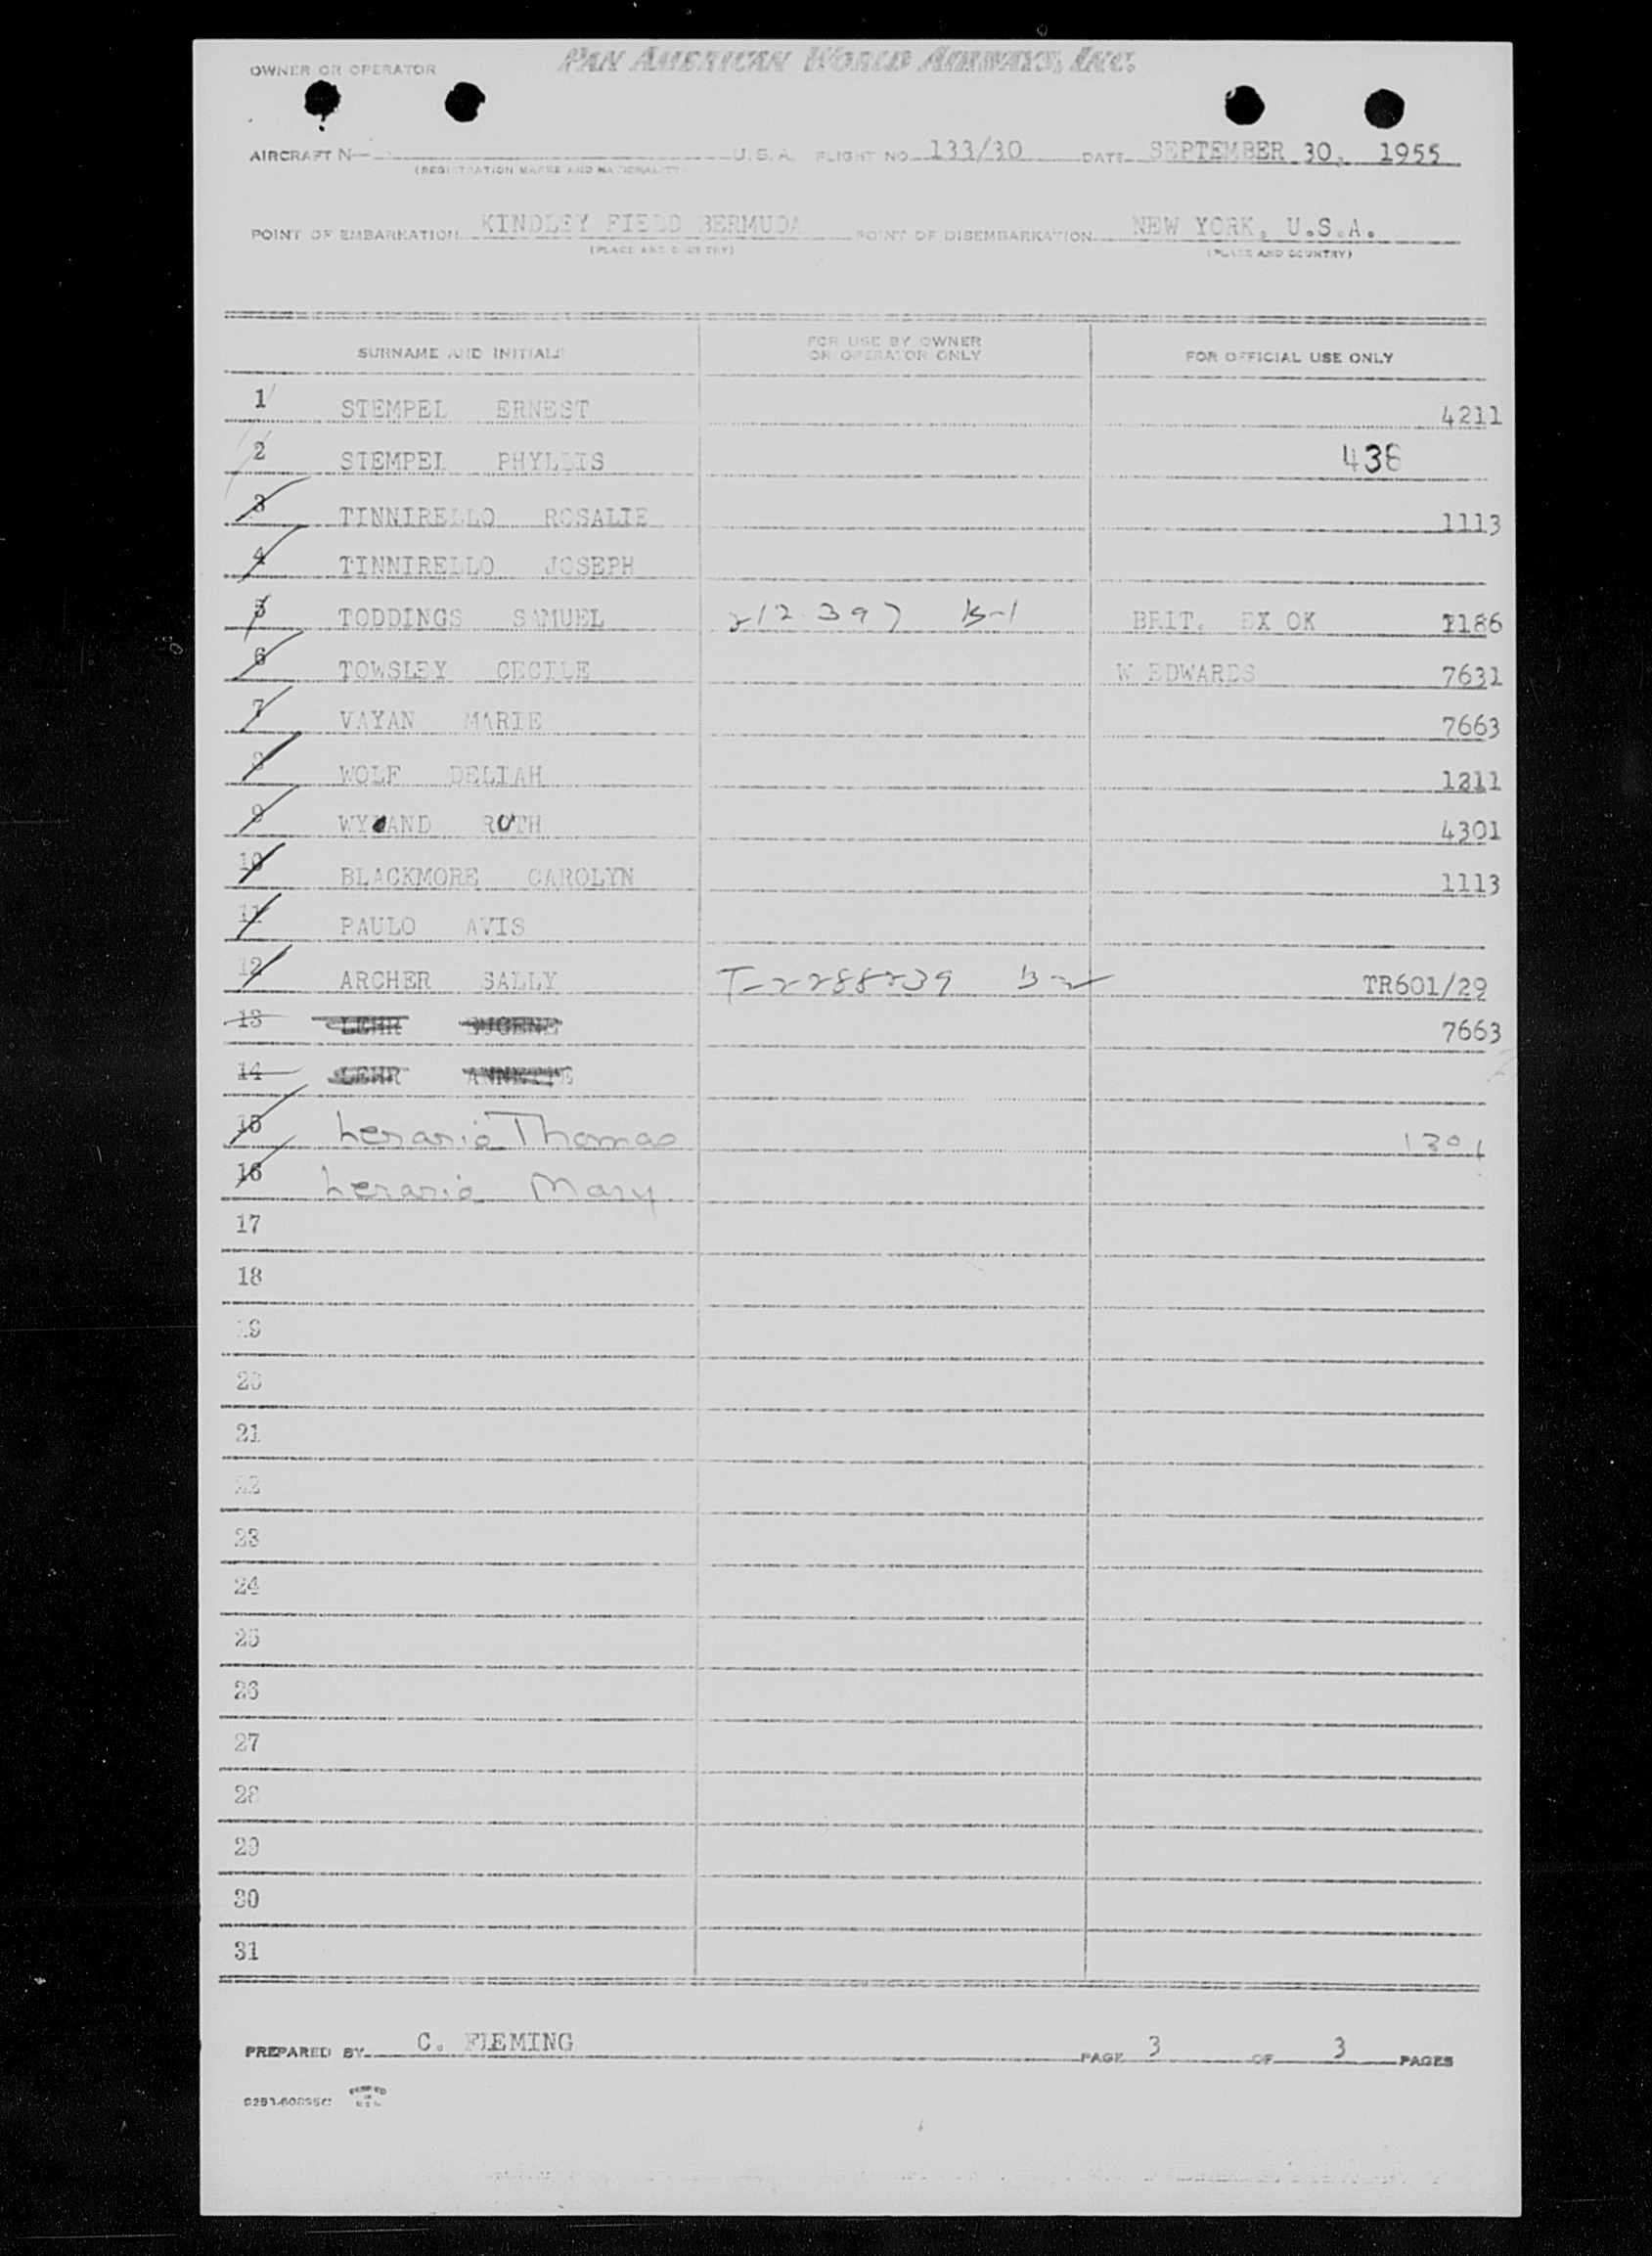 OWNER OR OPERATOR PAN AMERICAN WORLD AIRWAYS, INC.
AIRCRAFT N U.S.A. FLIGHT NO. 133/30 DATE SEPTEMBER 30, 1955
(REGISTRATION MARKS AND NATIONALITY)
POINT OF EMBARKATION KINDLEY FIELD BERMUDA POINT OF DISEMBARKATION NEW YORK, U.S.A.
(PLACE AND COUNTRY) (PLACE AND COUNTRY)
SURNAME AND INITIALS FOR USE BY OWNER OR OPERATOR ONLY FOR OFFICIAL USE ONLY
1 STEMPEL ERNEST 4211
2 STEMPEL PHYLLIS 438
3 TINNIRELLO ROSALIE 1113
4 TINNIRELLO JOSEPH
5 TODDINGS SAMUEL 212397 B-1 BRIT. EX OK 1186
6 TOWSLEY CECILE W EDWARDS 7631
7 VAYAN MARIE 7663
8 WOLF DELIAH 1211
9 RUTH 4301
10 BLACKMORE CAROLYN 1113
11 PAULO AVIS
12 ARCHER SALLY T-2288239 B-2 TR601/29
13 LEHR EUGENE 7663
14 LEHR ANNETTE
15 Lerario Thomas 1301
16 Lerario Mary
17
18
19
20
21
22
23
24
25
26
27
28
29
30
31
PREPARED BY C. FLEMING PAGE 3 OF 3 PAGES
PRINTED IN U.S.A.